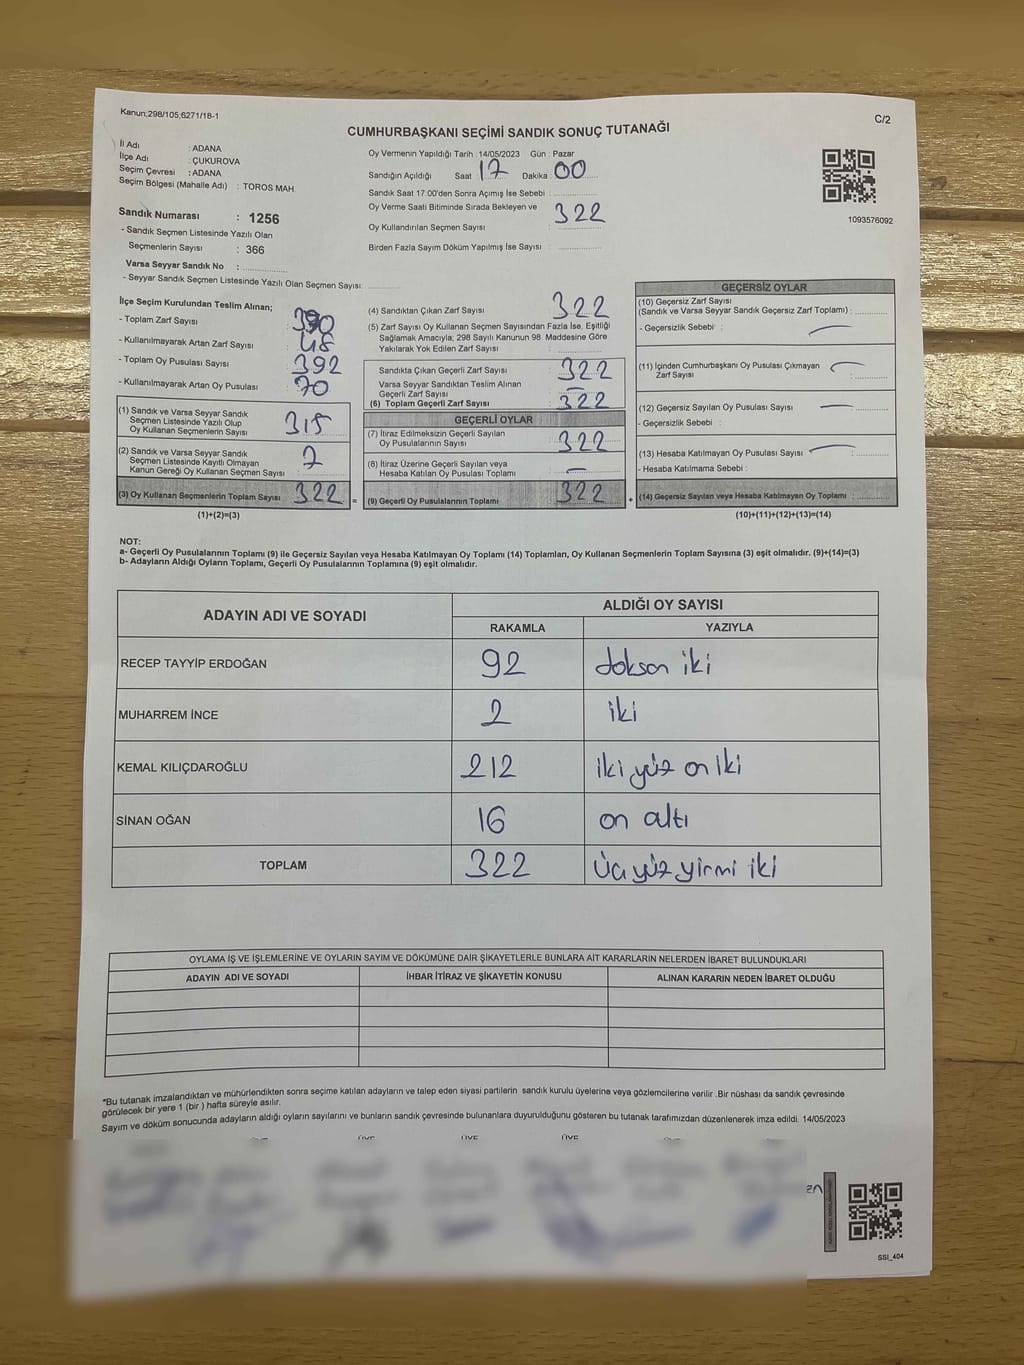 Kanun;298/105,6271/18-1
C/2
CUMHURBAŞKANI SEÇİMİ SANDIK SONUÇ TUTANAĞI
İl Adı : ADANA
İlçe Adı : ÇUKUROVA
Seçim Çevresi : ADANA
Seçim Bölgesi (Mahalle Adı) : TOROS MAH.
Sandık Numarası : 1256
- Sandık Seçmen Listesinde Yazılı Olan
Seçmenlerin Sayısı : 366
Varsa Seyyar Sandık No :
- Seyyar Sandık Seçmen Listesinde Yazılı Olan Seçmen Sayısı:
Oy Vermenin Yapıldığı Tarih : 14/05/2023 Gün : Pazar
Sandığın Açıldığı Saat 17 Dakika 00
Sandık Saat 17:00'den Sonra Açımış İse Sebebi :
Oy Verme Saati Bitiminde Sırada Bekleyen ve
Oy Kullandırılan Seçmen Sayısı : 322
Birden Fazla Sayım Döküm Yapılmış İse Sayısı :
1093576092
İlçe Seçim Kurulundan Teslim Alınan;
- Toplam Zarf Sayısı :
- Kullanılmayarak Artan Zarf Sayısı : 48
- Toplam Oy Pusulası Sayısı : 392
- Kullanılmayarak Artan Oy Pusulası : 70
(1) Sandık ve Varsa Seyyar Sandık
Seçmen Listesinde Yazılı Olup
Oy Kullanan Seçmenlerin Sayısı : 315
(2) Sandık ve Varsa Seyyar Sandık
Seçmen Listesinde Kayıtlı Olmayan
Kanun Gereği Oy Kullanan Seçmen Sayısı : 7
(3) Oy Kullanan Seçmenlerin Toplam Sayısı : 322
(1)+(2)=(3)
=
(4) Sandıktan Çıkan Zarf Sayısı : 322
(5) Zarf Sayısı Oy Kullanan Seçmen Sayısından Fazla İse, Eşitliği
Sağlamak Amacıyla; 298 Sayılı Kanunun 98. Maddesine Göre
Yakılarak Yok Edilen Zarf Sayısı :
Sandıkta Çıkan Geçerli Zarf Sayısı : 322
Varsa Seyyar Sandıktan Teslim Alınan
Geçerli Zarf Sayısı : —
(6) Toplam Geçerli Zarf Sayısı : 322
GEÇERLİ OYLAR
(7) İtiraz Edilmeksizin Geçerli Sayılan
Oy Pusulalarının Sayısı : 322
(8) İtiraz Üzerine Geçerli Sayılan veya
Hesaba Katılan Oy Pusulası Toplamı : —
(9) Geçerli Oy Pusulalarının Toplamı : 322
+
GEÇERSİZ OYLAR
(10) Geçersiz Zarf Sayısı
(Sandık ve Varsa Seyyar Sandık Geçersiz Zarf Toplamı) :
- Geçersizlik Sebebi : —
(11) İçinden Cumhurbaşkanı Oy Pusulası Çıkmayan
Zarf Sayısı : —
(12) Geçersiz Sayılan Oy Pusulası Sayısı : —
- Geçersizlik Sebebi :
(13) Hesaba Katılmayan Oy Pusulası Sayısı : —
- Hesaba Katılmama Sebebi :
(14) Geçersiz Sayılan veya Hesaba Katılmayan Oy Toplamı :
(10)+(11)+(12)+(13)=(14)
NOT:
a- Geçerli Oy Pusulalarının Toplamı (9) ile Geçersiz Sayılan veya Hesaba Katılmayan Oy Toplamı (14) Toplamları, Oy Kullanan Seçmenlerin Toplam Sayısına (3) eşit olmalıdır. (9)+(14)=(3)
b- Adayların Aldığı Oyların Toplamı, Geçerli Oy Pusulalarının Toplamına (9) eşit olmalıdır.
ADAYIN ADI VE SOYADI ALDIĞI OY SAYISI
RAKAMLA YAZIYLA
RECEP TAYYİP ERDOĞAN 92 doksan iki
MUHARREM İNCE 2 iki
KEMAL KILIÇDAROĞLU 212 iki yüz on iki
SİNAN OĞAN 16 on altı
TOPLAM 322 Üç yüz yirmi iki
OYLAMA İŞ VE İŞLEMLERİNE VE OYLARIN SAYIM VE DÖKÜMÜNE DAİR ŞİKAYETLERLE BUNLARA AİT KARARLARIN NELERDEN İBARET BULUNDUKLARI
ADAYIN ADI VE SOYADI İHBAR İTİRAZ VE ŞİKAYETİN KONUSU ALINAN KARARIN NEDEN İBARET OLDUĞU
*Bu tutanak imzalandıktan ve mühürlendikten sonra seçime katılan adayların ve talep eden siyasi partilerin sandık kurulu üyelerine veya gözlemcilerine verilir .Bir nüshası da sandık çevresinde
görülecek bir yere 1 (bir ) hafta süreyle asılır.
Sayım ve döküm sonucunda adayların aldığı oyların sayılarını ve bunların sandık çevresinde bulunanlara duyurulduğunu gösteren bu tutanak tarafımızdan düzenlenerek imza edildi. 14/05/2023
ÜYE ÜYE ÜYE
SSI_404